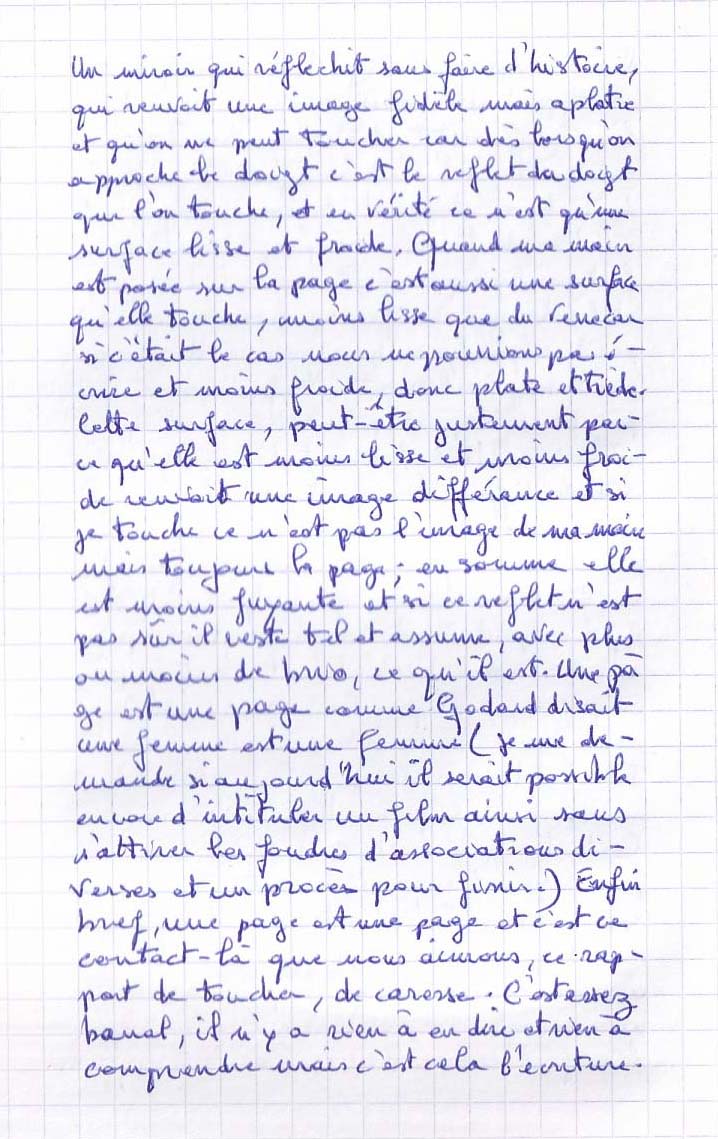 Un miroir qui réflechit sans faire d'histoire,
qui renvoit une image fidèle mais aplatie
et qu'on ne peut toucher car dès lorsqu'on
approche le doigt c'est le reflet du doigt
que l'on touche, et en vérité ce n'est qu'une
surface lisse et froide. Quand ma main
est posée sur la page c'est aussi une surface
qu'elle touche, moins lisse que du
si c'était le cas nous ne pourrions pas é-
crire et moins froide, donc plate et tiède.
Cette surface, peut-être justement par-
ce qu'elle est moins lisse et moins froi-
de renvoit une image différance et si
je touche ce n'est pas l'image de ma main
mais toujours la page; en somme elle
est moins fuyante et si ce reflet n'est
pas sûr il reste tel et assume, avec plus
ou moins de brio, ce qu'il est. Une pa
ge est une page comme Godard disait
une femme est une femme (je me de-
mande si aujourd'hui il serait possible
encore d'intituler un film ainsi sans
s'attirer les foudres d'associations di-
verses et un procès pour finir.) Enfin
bref, une page est une page et c'est ce
contact-là que nous aimons, ce rap-
port de toucher, de caresse. C'est assez
banal, il n'y a rien à en dire et rien à
comprendre mais c'est cela l'écriture.